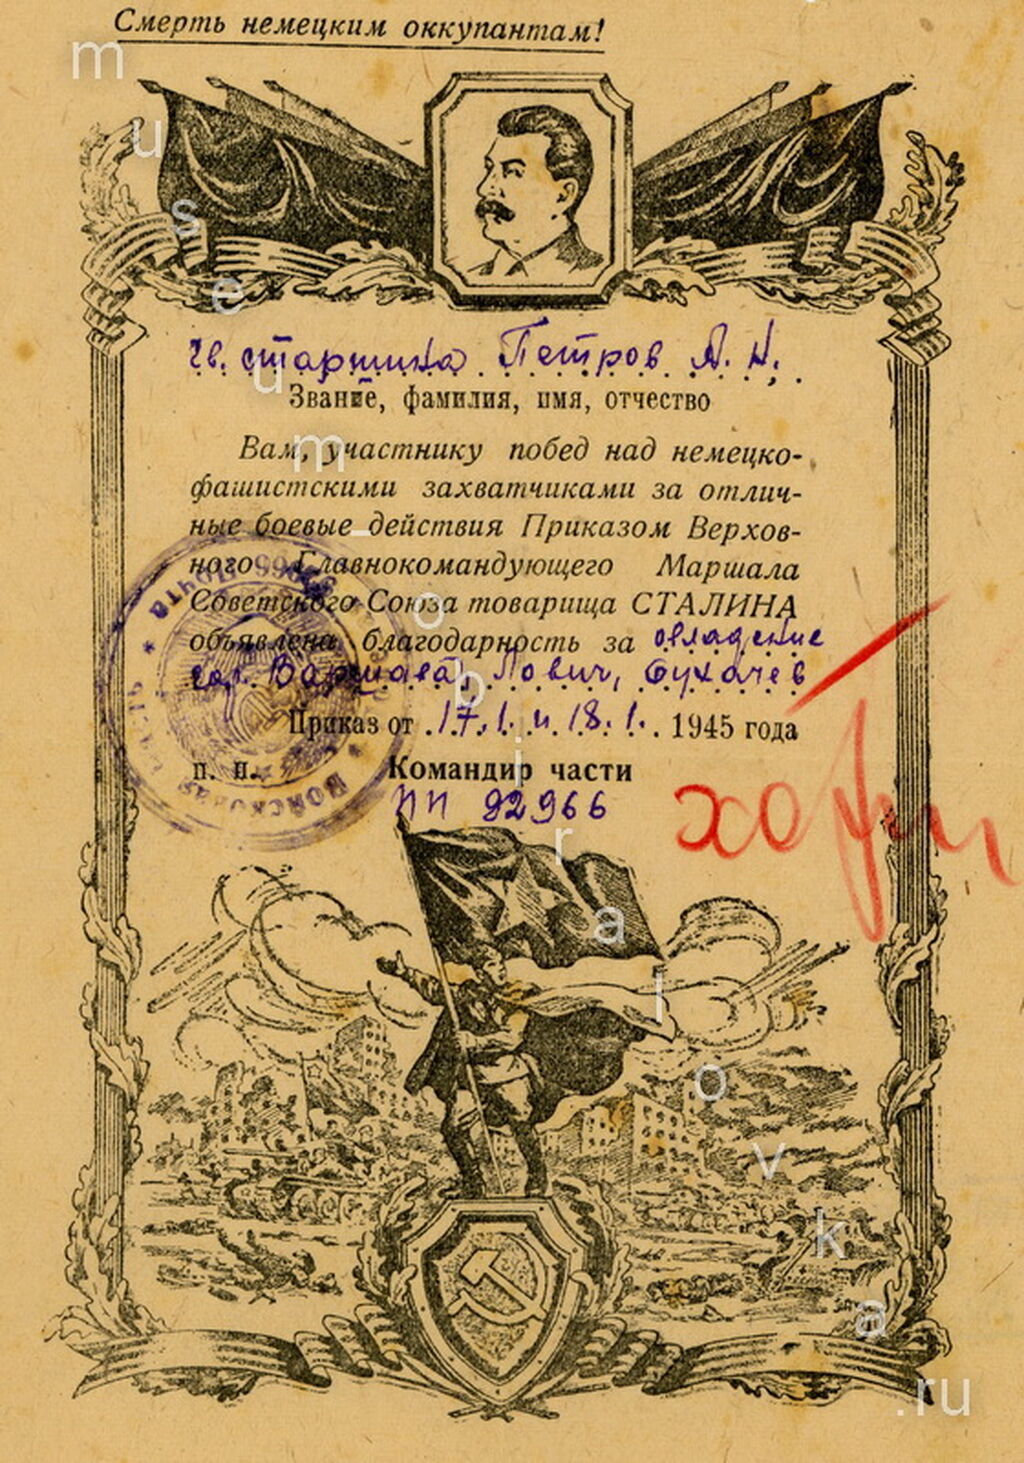 Смерть немецким оккупантам!
гв. старшина Петров А. Н.
Звание, фамилия, имя, отчество
Вам, участнику побед над немецко-
фашистскими захватчиками за отлич-
ные боевые действия Приказом Верхов-
ного Главнокомандующего Маршала
Советского Союза товарища СТАЛИНА
объявлена благодарность за овладение
гор. Варшава, Лович, Сухачев
Приказ от 17.1. и 18.1. 1945 года
п. п. Командир части
ПП 92966
museum_objralovka.ru